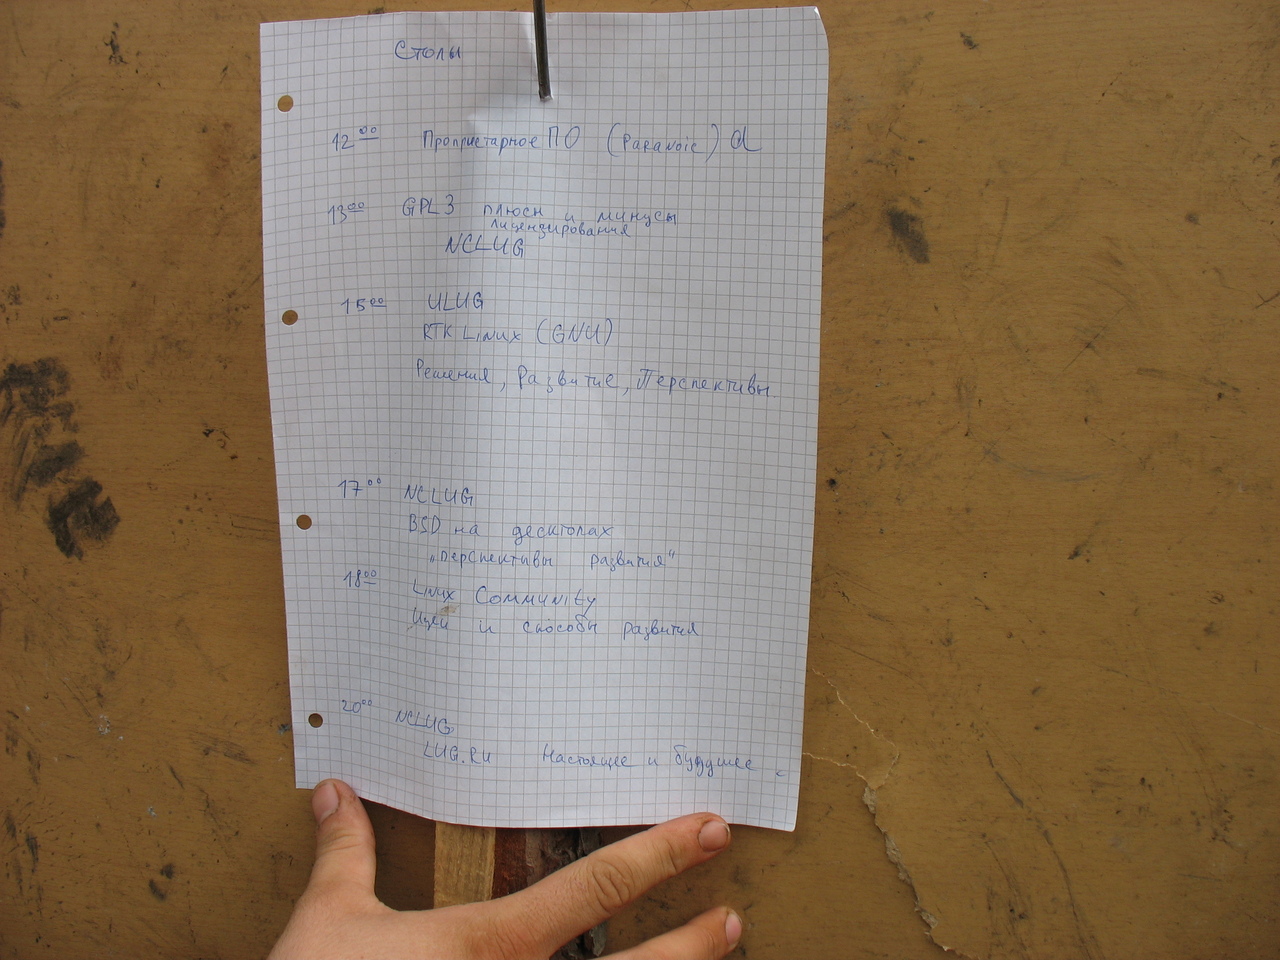 Столы
12⁰⁰ Проприетарное ПО (Paranoic) d
13⁰⁰ GPL3 плюсы и минусы
лицензирования
NCLUG
15⁰⁰ ULUG
RTK Linux (GNU)
Решения, Развитие, Перспективы
17⁰⁰ NCLUG
BSD на десктопах
„перспективы развития“
18⁰⁰ Linux Community
Идеи и способы развития
20⁰⁰ NCLUG
LUG.RU Настоящее и будущее